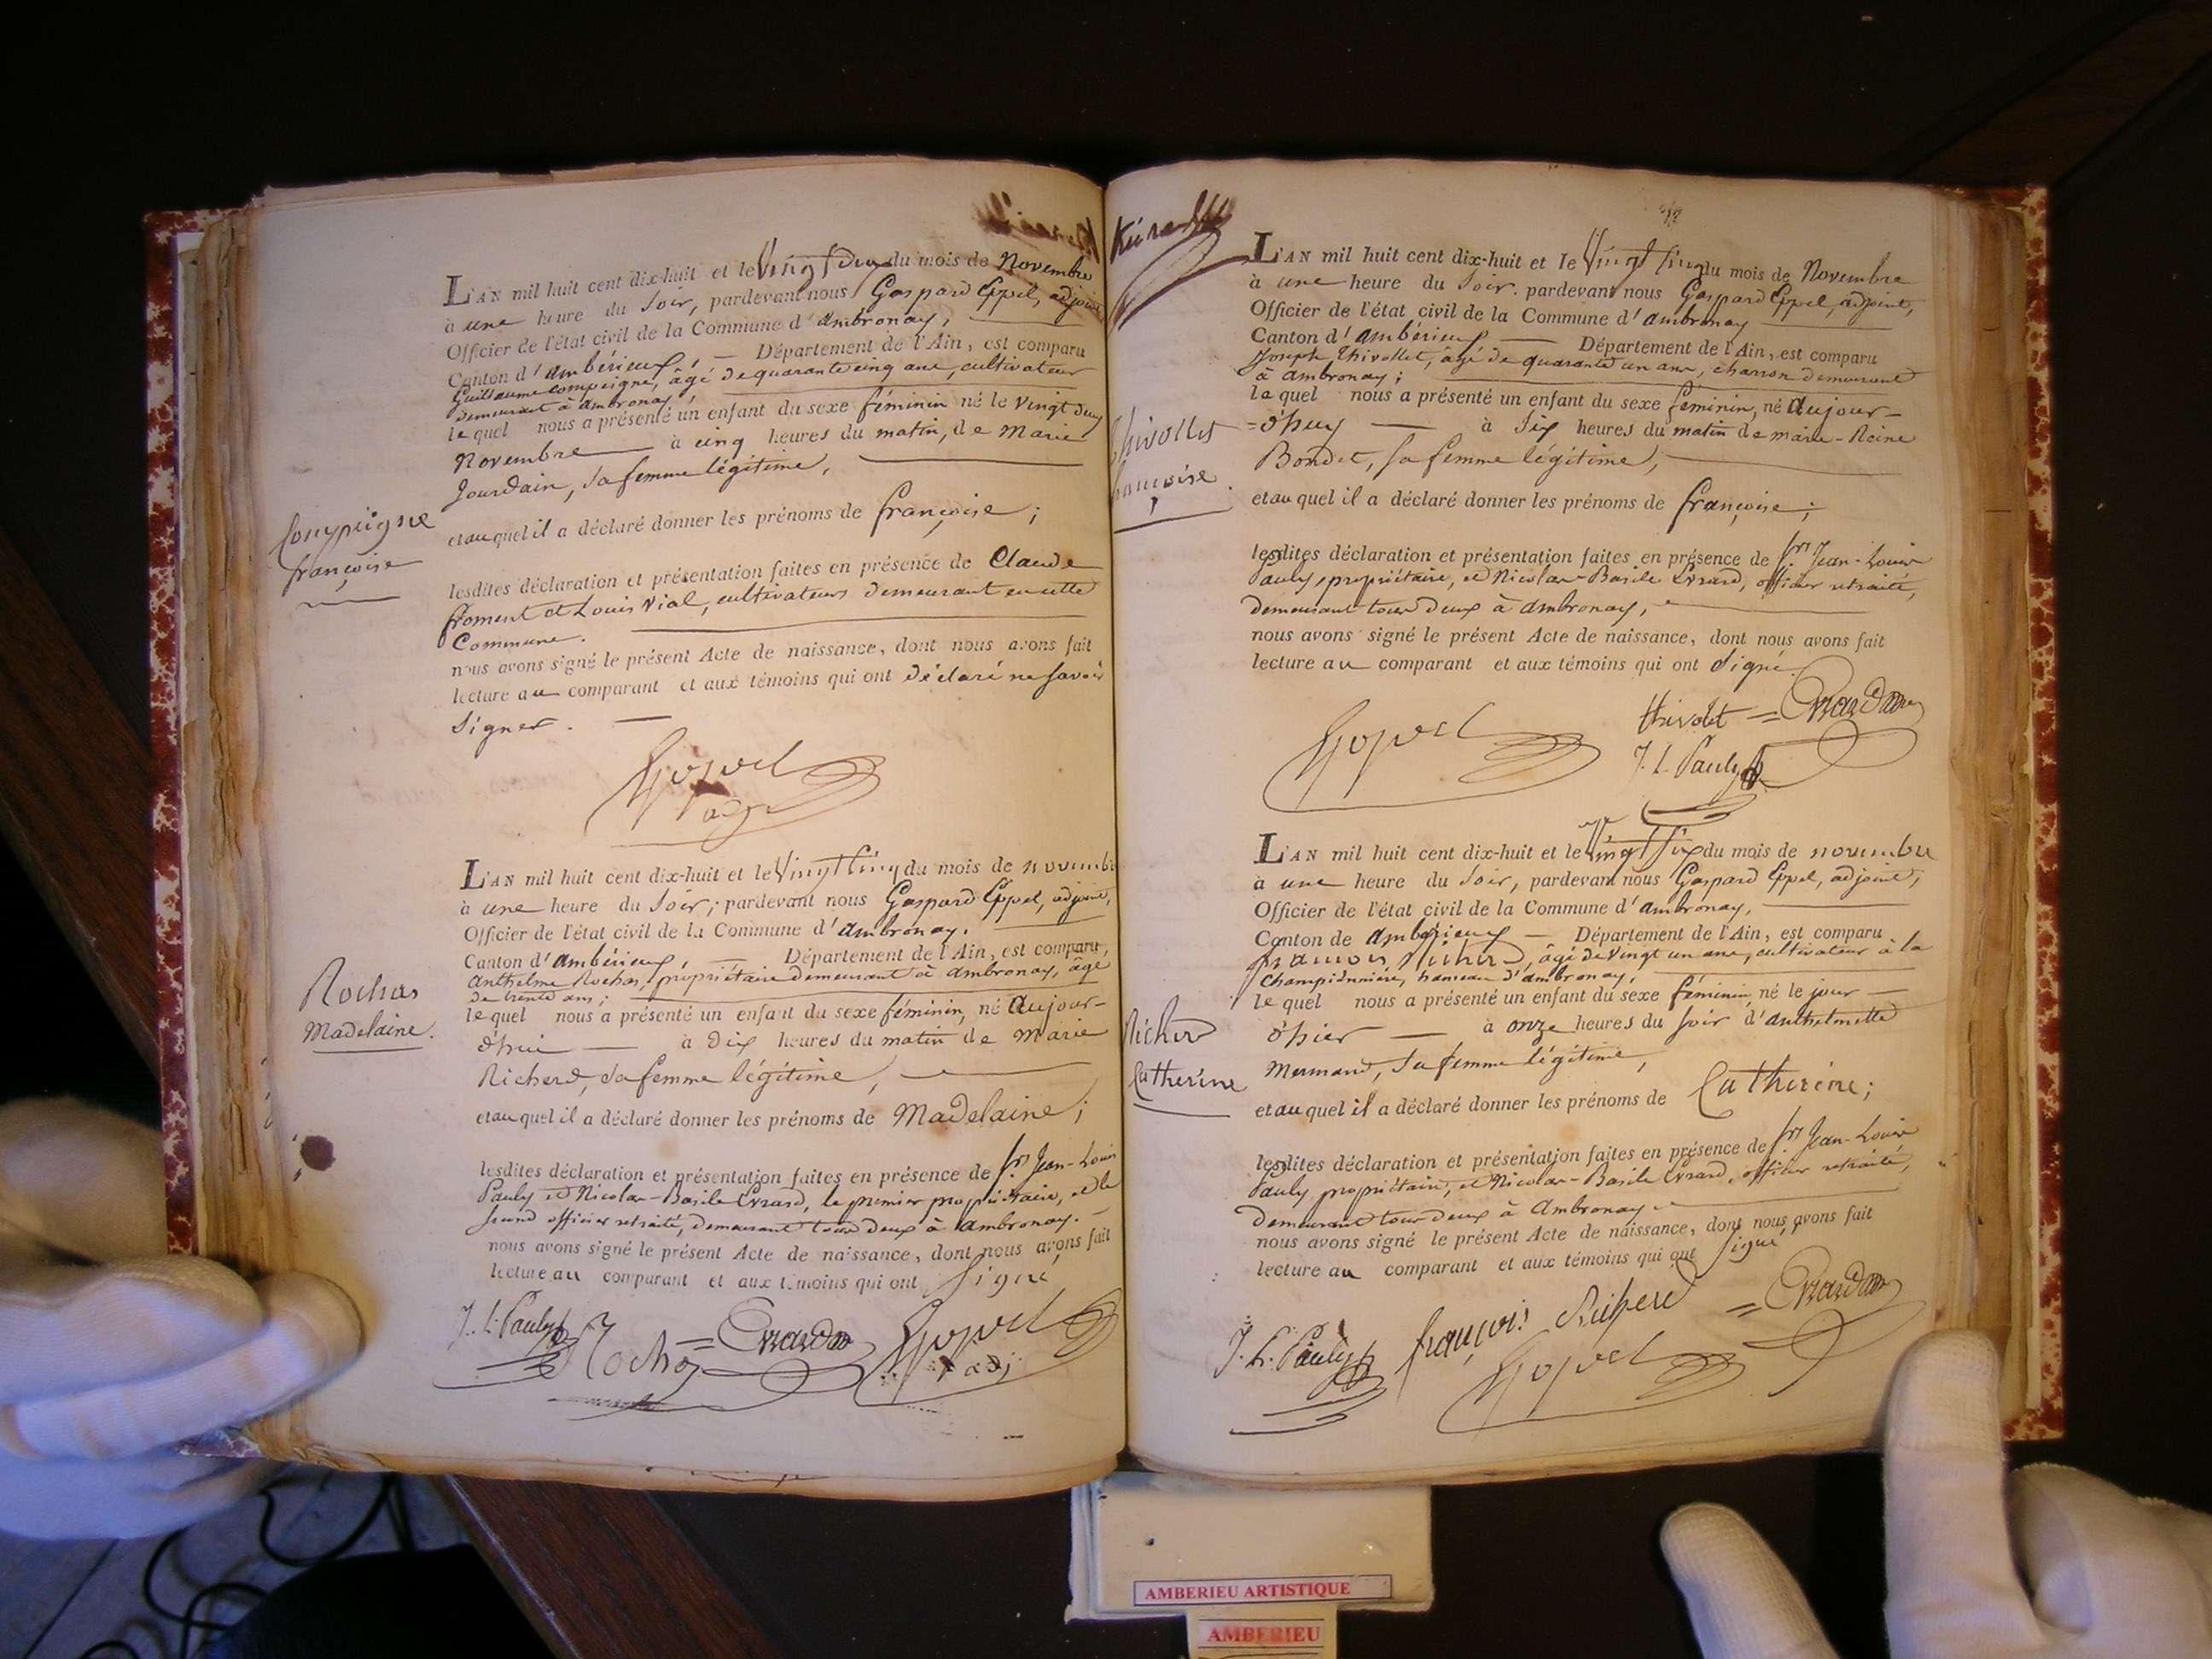 L'AN mil huit cent dix-huit et le Vingt deux du mois de Novembre
à une heure du Soir, pardevant nous Gaspard Eppel, adjoint
Officier de l'état civil de la Commune d'ambronay,
Canton d'ambérieux, Département de l'Ain, est comparu
Guillaume Compeigne, âgé de quarante cinq ans, cultivateur
demeurant à ambronay,
lequel nous a présenté un enfant du sexe féminin né le vingt deux
Novembre à cinq heures du matin, de Marie
Jourdain, sa femme légitime,
et auquel il a déclaré donner les prénoms de françoise ;
Compeigne
françoise
lesdites déclaration et présentation faites en présence de Claude
froment et Louis Vial, cultivateurs demeurant en cette
Commune.
nous avons signé le présent Acte de naissance, dont nous avons fait
lecture au comparant et aux témoins qui ont déclaré ne savoir
signer.
L'AN mil huit cent dix-huit et le Vingt Cinq du mois de novembre
à une heure du Soir ; pardevant nous Gaspard Eppel, adjoint,
Officier de l'état civil de la Commune d'ambronay.
Canton d'ambérieux, Département de l'Ain, est comparu,
anthelme Rochas, propriétaire demeurant à ambronay, âgé
de trente ans ;
lequel nous a présenté un enfant du sexe féminin, né aujour-
d'hui à dix heures du matin de Marie
Richerd, sa femme légitime,
et auquel il a déclaré donner les prénoms de Madelaine ;
Rochas
Madelaine.
lesdites déclaration et présentation faites en présence de frs Jean-Louis
Pauly et Nicolas-Basile Evrard, le premier propriétaire, et le
second officier retraité, demeurant tous deux à ambronay.
nous avons signé le présent Acte de naissance, dont nous avons fait
lecture au comparant et aux témoins qui ont Signé
J. L. Pauly Rochas Evrard
adj
L'AN mil huit cent dix-huit et le Vingt Cinq du mois de Novembre
à une heure du Soir. pardevant nous Gaspard Eppel, adjoint,
Officier de l'état civil de la Commune d'ambronay
Canton d'ambérieux Département de l'Ain, est comparu
Joseph Thivollet, âgé de quarante un ans, charron demeurant
à ambronay ;
lequel nous a présenté un enfant du sexe féminin, né aujour-
=d'huy à Six heures du matin de marie-Reine
Bondet, sa femme légitime,
et auquel il a déclaré donner les prénoms de françoise ;
Thivollet
françoise.
lesdites déclaration et présentation faites en présence de frs Jean-Louis
Pauly, propriétaire, et Nicolas-Basile Evrard, officier retraité,
demeurant tous deux à ambronay,
nous avons signé le présent Acte de naissance, dont nous avons fait
lecture au comparant et aux témoins qui ont Signé
thivolet = Evrard
J. L. Pauly
L'AN mil huit cent dix-huit et le Vingt Six du mois de novembre
à une heure du Soir, pardevant nous Gaspard Eppel, adjoint,
Officier de l'état civil de la Commune d'ambronay,
Canton de ambérieux Département de l'Ain, est comparu
françois Richerd, âgé de vingt un ans, cultivateur à la
Championnière, hameau d'ambronay,
lequel nous a présenté un enfant du sexe féminin, né le jour
d'hier à onze heures du soir d'anthelmette
Mermand, sa femme légitime,
et auquel il a déclaré donner les prénoms de Catherine ;
Richerd
Catherine
lesdites déclaration et présentation faites en présence de frs Jean-Louis
Pauly propriétaire, et Nicolas-Basile Evrard, officier retraité,
demeurant tous deux à Ambronay
nous avons signé le présent Acte de naissance, dont nous avons fait
lecture au comparant et aux témoins qui ont signé
J. L. Pauly françois Richerd = Evrard
AMBERIEU ARTISTIQUE
AMBERIEU